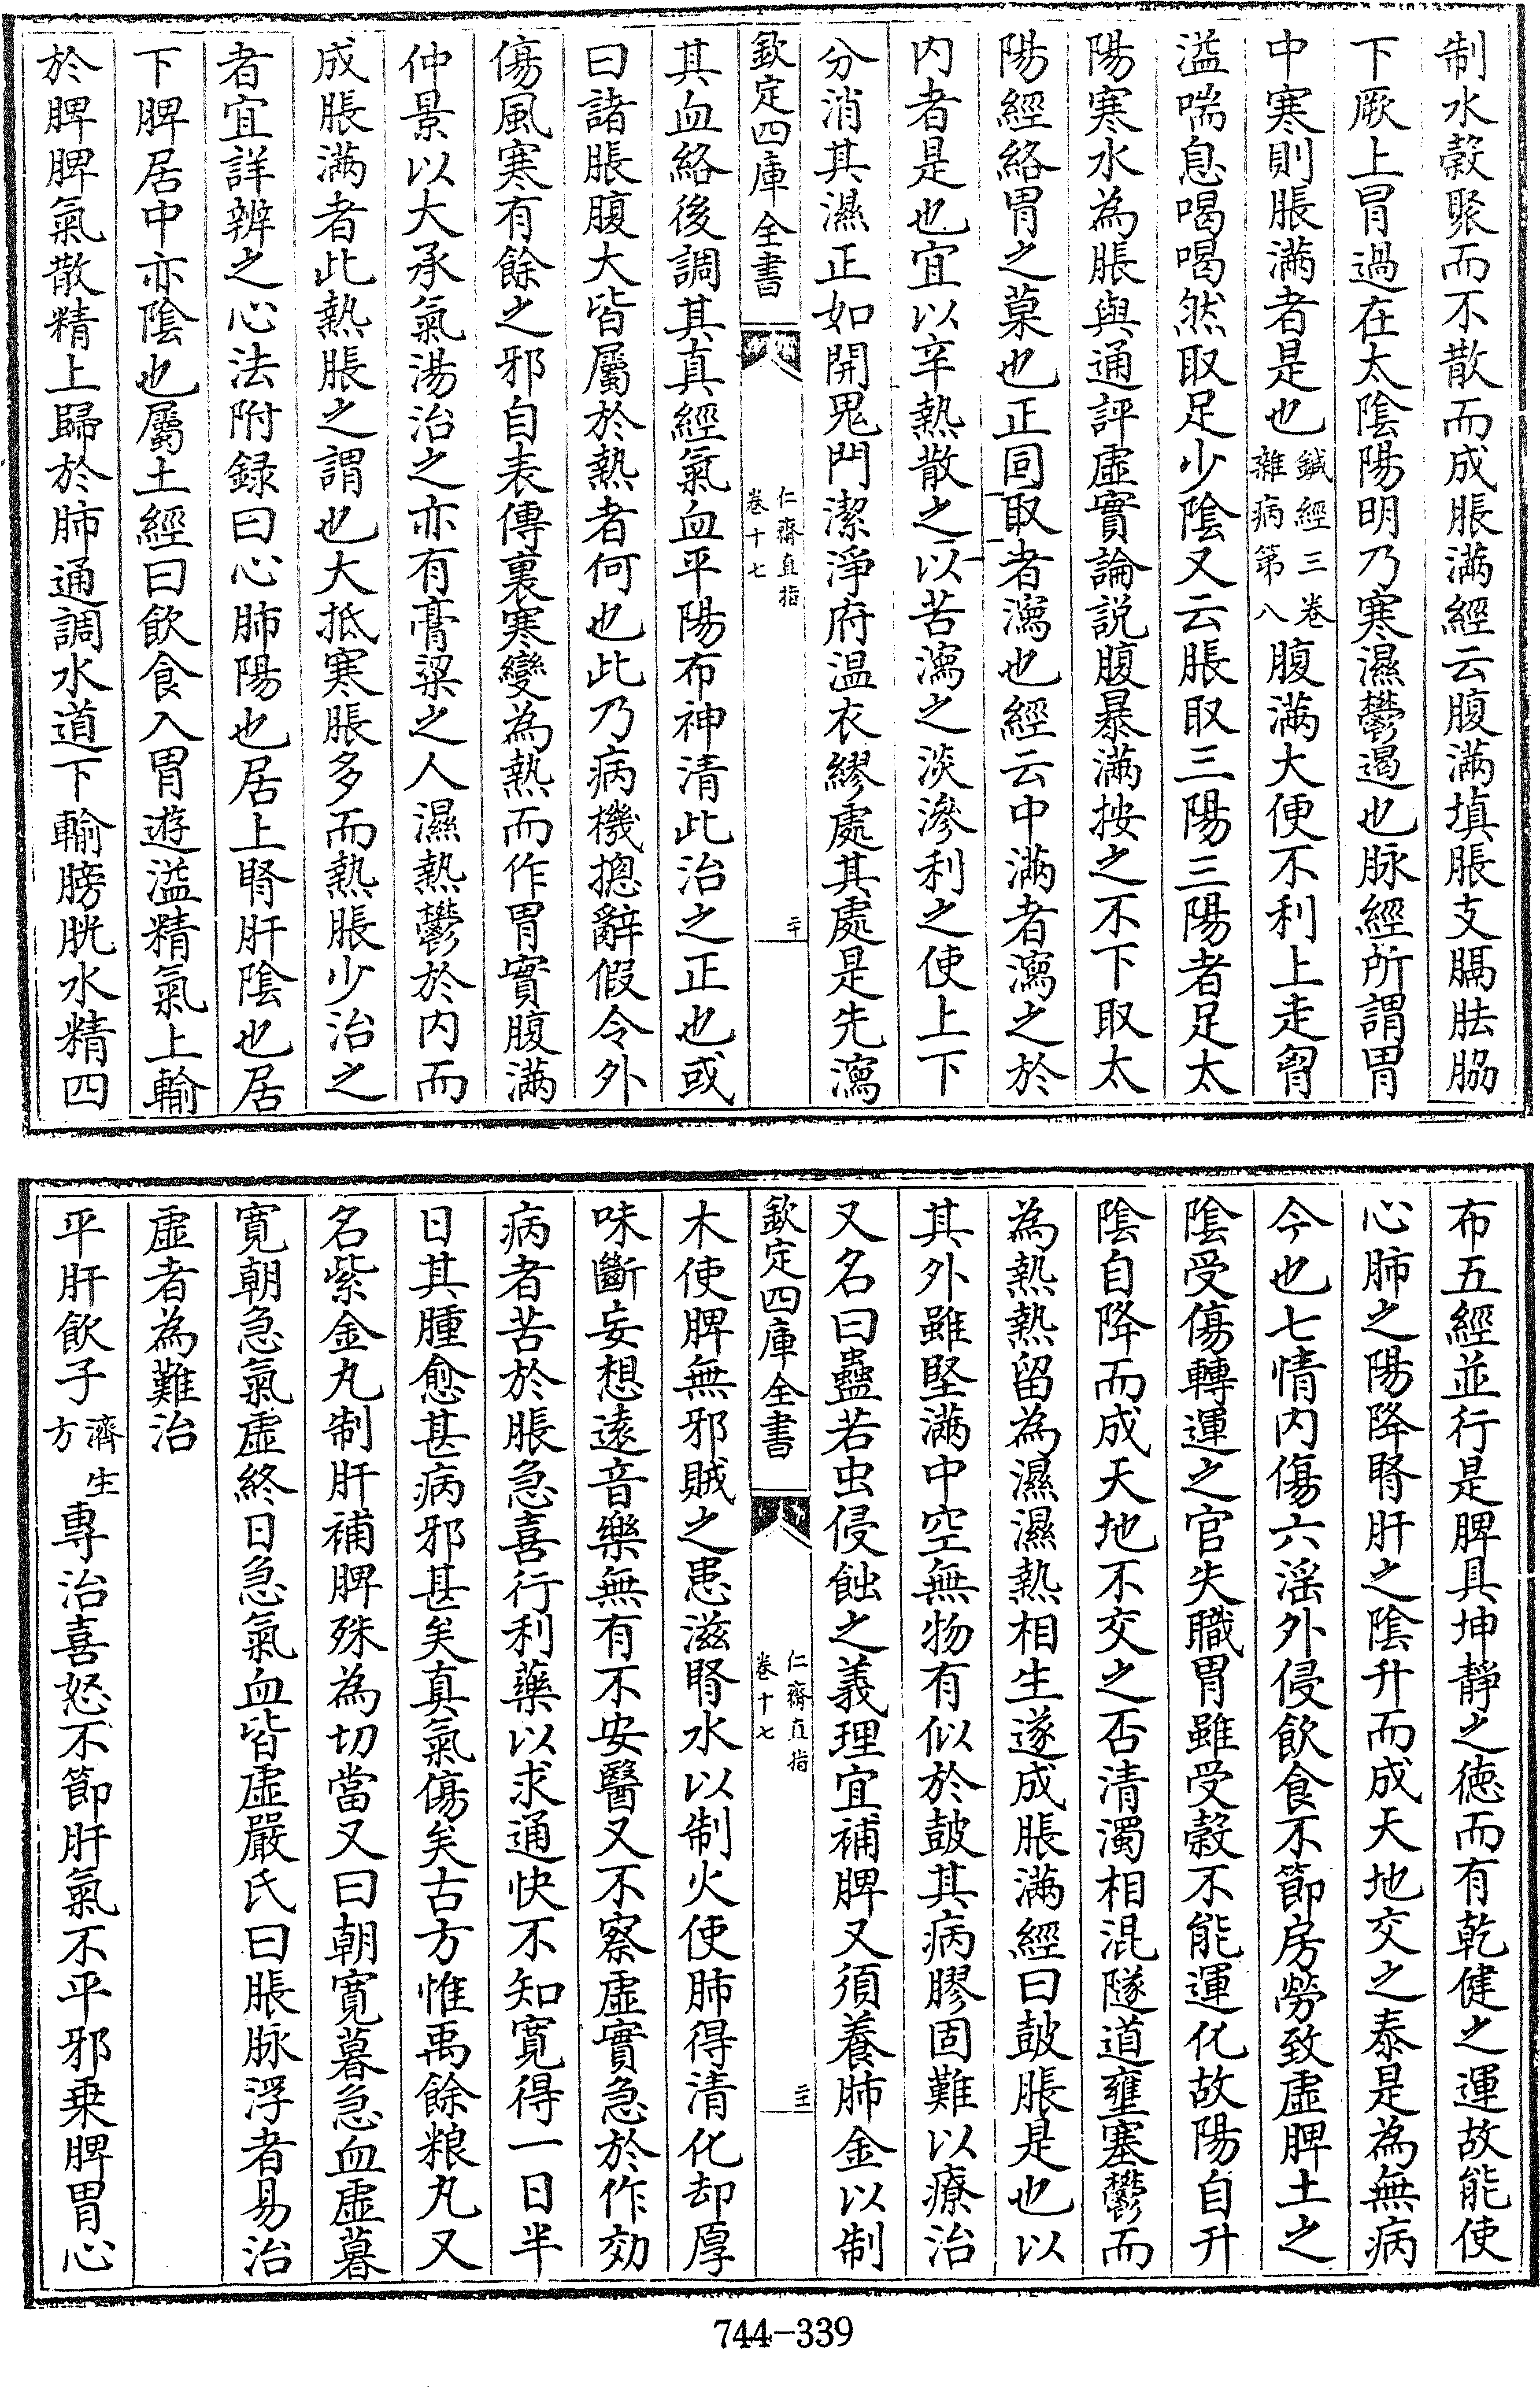 制水穀聚而不散而成脹滿經云腹滿填脹支膈胠脇
下厥上冒過在太陰陽明乃寒濕鬱遏也脉經所謂胃
中寒則脹滿者是也鍼經三卷雜病第八腹滿大便不利上走胷
溢喘息喝喝然取足少陰又云脹取三陽三陽者足太
陽寒水為脹與通評虛實論説腹暴滿按之不下取太
陽經絡胃之募也正同取者瀉也經云中滿者瀉之於
内者是也宜以辛熱散之以苦瀉之淡滲利之使上下
分消其濕正如開鬼門潔淨府温衣繆處其處是先瀉
欽定四庫全書
仁齋直指
卷十七
二十
其血絡後調其真經氣血平陽布神清此治之正也或
曰諸脹腹大皆屬於熱者何也此乃病機摠辭假令外
傷風寒有餘之邪自表傳裏寒變為熱而作胃實腹滿
仲景以大承氣湯治之亦有膏粱之人濕熱鬱於内而
成脹滿者此熱脹之謂也大抵寒脹多而熱脹少治之
者宜詳辨之心法附録曰心肺陽也居上腎肝陰也居
下脾居中亦陰也屬土經曰飲食入胃遊溢精氣上輸
於脾脾氣散精上歸於肺通調水道下輸膀胱水精四
布五經並行是脾具坤靜之徳而有乾健之運故能使
心肺之陽降腎肝之陰升而成天地交之泰是為無病
今也七情内傷六淫外侵飲食不節房勞致虛脾土之
陰受傷轉運之官失職胃雖受穀不能運化故陽自升
陰自降而成天地不交之否清濁相混隧道壅塞鬱而
為熱熱留為濕濕熱相生遂成脹滿經曰皷脹是也以
其外雖堅滿中空無物有似於皷其病膠固難以療治
又名曰蠱若虫侵蝕之義理宜補脾又須養肺金以制
欽定四庫全書
仁齋直指
卷十七
二十一
木使脾無邪賊之患滋腎水以制火使肺得清化却厚
味斷妄想遠音樂無有不安醫又不察虛實急於作効
病者苦於脹急喜行利藥以求通快不知寛得一日半
日其腫愈甚病邪甚矣真氣傷矣古方惟禹餘粮丸又
名紫金丸制肝補脾殊為切當又曰朝寛暮急血虛暮
寛朝急氣虛終日急氣血皆虛嚴氏曰脹脉浮者易治
虛者為難治
平肝飲子濟生方專治喜怒不節肝氣不平邪乗脾胃心
744-339